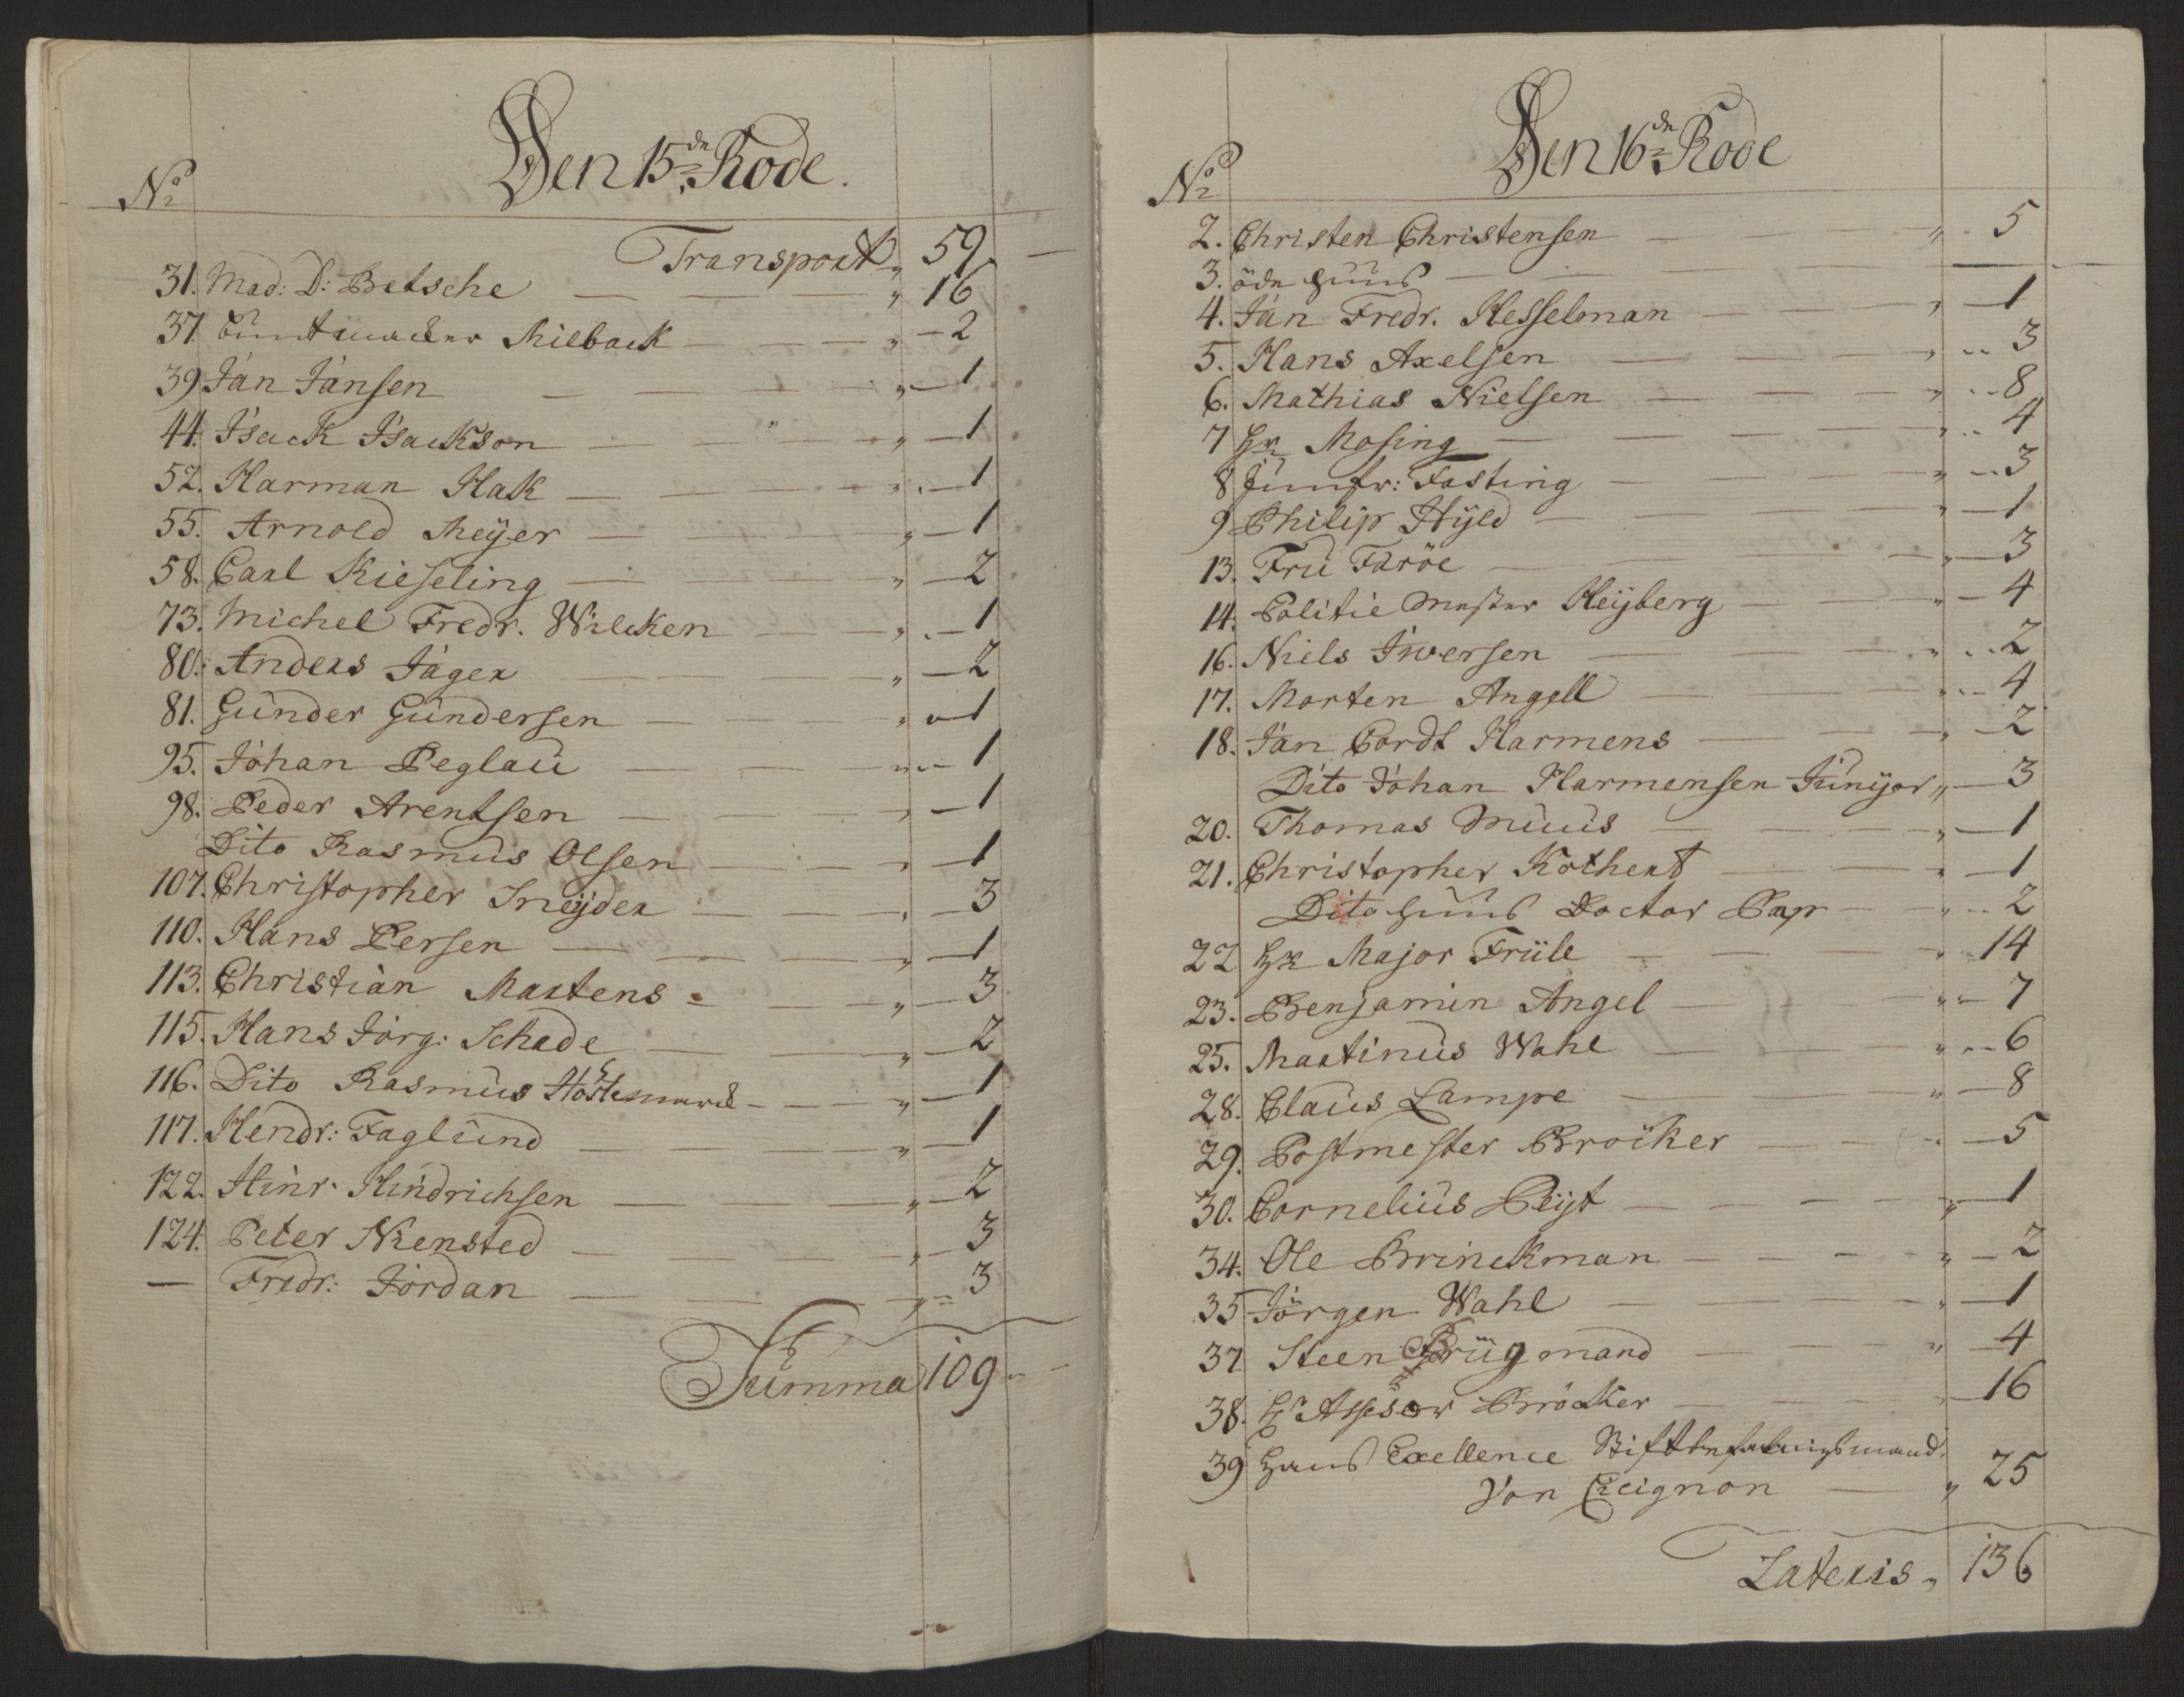 Den 15de Rode.
No
Transport 59
31. Mad: D: Betsche 16
37 Buntmacker Milback 2
39 Jan Jansen 1
44. Isack Isackson 1
52. Harman Hak 1
55. Arnold Meÿer 1
58. Carl Kieseling 2
73. Michel Fredr. Wilcken 1
80. Anders Jäger 2
81. Gunder Gundersen 1
95. Johan Peglau 1
98. Peder Arentsen 1
Dito Rasmus Olsen 1
107. Christopher Sneÿder 3
110. Hans Persen 1
113. Christian Martens 3
115. Hans Jörg: Schade 2
116. Dito Rasmus 1
117. Hendr: Faglund 1
122. Hinr. Hindrichsen 2
124. Peter Niensted 3
— Fredr: Jordan 3
Summa 109
Den 16de Rode
No
2. Christen Christensen 5
3. öde Huus —
4. Jan Fredr. Hesselman 1
5. Hans Axelsen 3
6. Mathias Nielsen 8
7 Hr Mosing 4
8 Jumfr: Fasting 3
9 Philip Hÿld 1
13. Fru Faröe 3
14. Politie Mester Heÿberg 4
16. Niels Iwersen 2
17. Morten Angell 4
18. Jan Cordt Harmens 2
Dito Johan Harmensen Junÿor 3
20. Thomas Muus 1
21. Christopher Kothert 1
Dito Huus Doctor Pap 2
22 Hr Major Früle 14
23. Benjamin Angel 7
25. Martinus Wahl 6
28. Claus Lampe 8
29. Postmester Bröcker 5
30. Cornelius Peÿt 1
34. Ole Brinckman 2
35 Jörgen Wahl 1
37 Steen Brügmand 4
38. Hr Assesor Bröcker 16
39 Hans Exellence Stiftbefalingsmand
Von Cicignon 25
Lateris 136